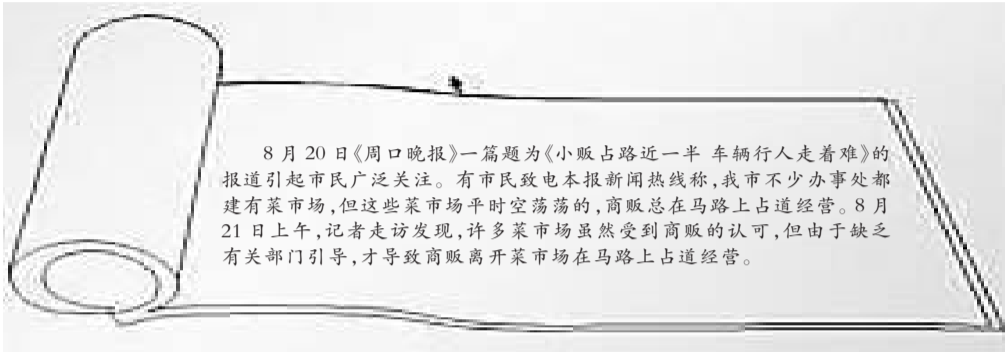 8月20日《周口晚报》一篇题为《小贩占路近一半 车辆行人走着难》的
报道引起市民广泛关注。有市民致电本报新闻热线称,我市不少办事处都
建有菜市场,但这些菜市场平时空荡荡的,商贩总在马路上占道经营。8月
21日上午,记者走访发现,许多菜市场虽然受到商贩的认可,但由于缺乏
有关部门引导,才导致商贩离开菜市场在马路上占道经营。